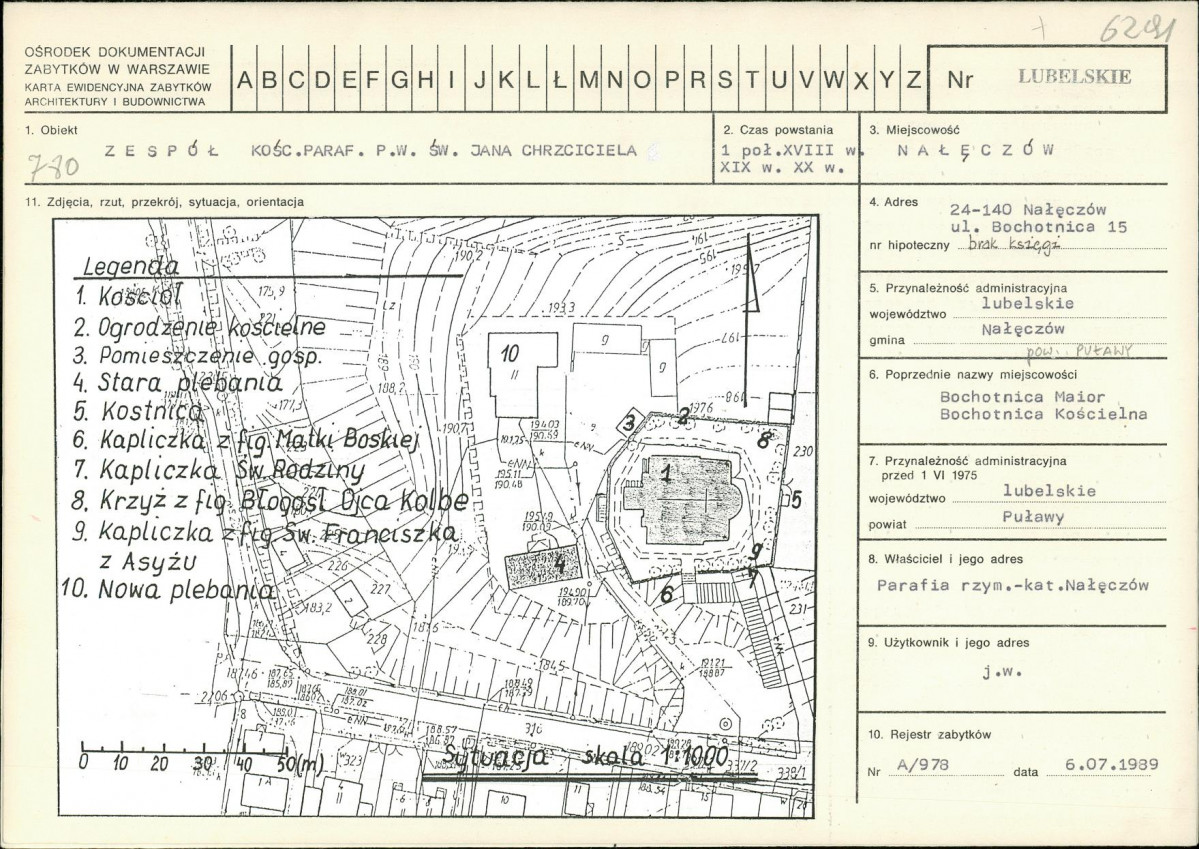 OŚRODEK DOKUMENTACJI
ZABYTKÓW W WARSZAWIE
KARTA EWIDENCYJNA ZABYTKÓW
ARCHITEKTURY I BUDOWNICTWA
A B C D E F G H I J K L Ł M N O P R S T U V W X Y Z
Nr LUBELSKIE
6291
1. Obiekt
ZESPÓŁ KOŚC.PARAF. P.W. ŚW. JANA CHRZCICIELA
780
2. Czas powstania
1 poł.XVIII w.
XIX w. XX w.
3. Miejscowość
NAŁĘCZÓW
11. Zdjęcia, rzut, przekrój, sytuacja, orientacja
Legenda
1. Kościół
2. Ogrodzenie kościelne
3. Pomieszczenie gosp.
4. Stara plebania
5. Kostnica
6. Kapliczka z fig Matki Boskiej
7. Kapliczka Św Rodziny
8. Krzyż z fig Błogosł Ojca Kolbe
9. Kapliczka z fig Św. Franciszka
z Asyżu
10. Nowa plebania
190,2
195
175,9
193,3
197
198
188,2
177,3
190,7
1976
10
3
2
8
1
5
4
6
9
7
230
231
226
227
228
183,2
194.03
190.59
195.11
190.48
194.90
189.70
184.5
187.46
316
323
337/2
338/1
0 10 20 30 40 50(m)
Sytuacja skala 1:1000
4. Adres
24-140 Nałęczów
ul. Bochotnica 15
nr hipoteczny brak księgi
5. Przynależność administracyjna
województwo lubelskie
gmina Nałęczów
pow. PUŁAWY
6. Poprzednie nazwy miejscowości
Bochotnica Maior
Bochotnica Kościelna
7. Przynależność administracyjna
przed 1 VI 1975
województwo lubelskie
powiat Puławy
8. Właściciel i jego adres
Parafia rzym.-kat.Nałęczów
9. Użytkownik i jego adres
j.w.
10. Rejestr zabytków
Nr A/978 data 6.07.1989